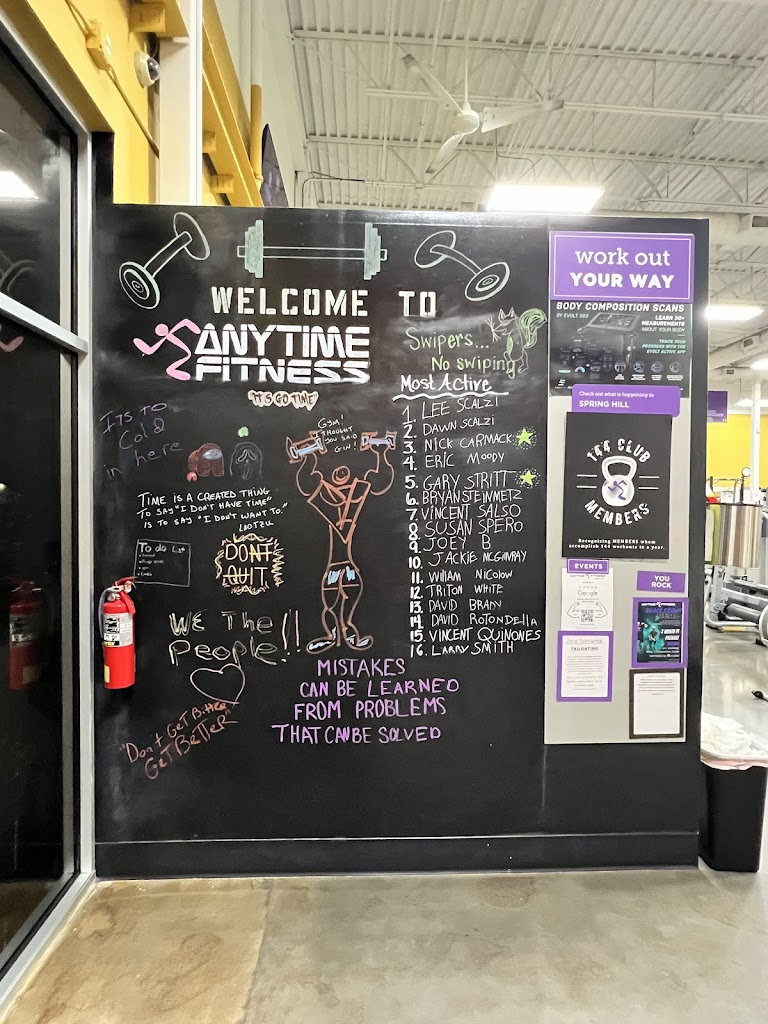 WELCOME TO
ANYTIME
FITNESS
"IT'S GO TIME"
Swipers...
No swiping
Most Active
1. LEE SCALZI
2. DAWN SCALZI
3. NICK CARMACK
4. ERIC MOODY
5. GARY STRITT
6. BRYAN STEINMETZ
7. VINCENT SALSO
8. SUSAN SPERO
9. JOEY B
10. JACKIE MCGINVRAY
11. William Nicolow
12. TRITON WHITE
13. DAVID BRADY
14. DAVID ROTONDELLA
15. VINCENT QUINONES
16. LARRY SMITH
Its to
Cold
in here
GYM!
I THOUGHT
YOU SAID
GIN!
TIME IS A CREATED THING
TO SAY "I DON'T HAVE TIME"
IS TO SAY "I DON'T WANT TO."
LAOTZU
To do List
DON'T
QUIT
We The
People!!
"Don't Get Bitter
Get Better"
MISTAKES
CAN BE LEARNED
FROM PROBLEMS
THAT CAN BE SOLVED
work out
YOUR WAY
BODY COMPOSITION SCANS
BY EVOLT 360
LEARN 20+
MEASUREMENTS
ABOUT YOUR BODY
TRACK YOUR
PROGRESS WITH THE
EVOLT ACTIVE APP
Check out what is happening in
SPRING HILL
144 CLUB
MEMBERS
Recognizing MEMBERS whom
accomplish 144 workouts in a year.
EVENTS
YOU
ROCK
Google
TAILGATING